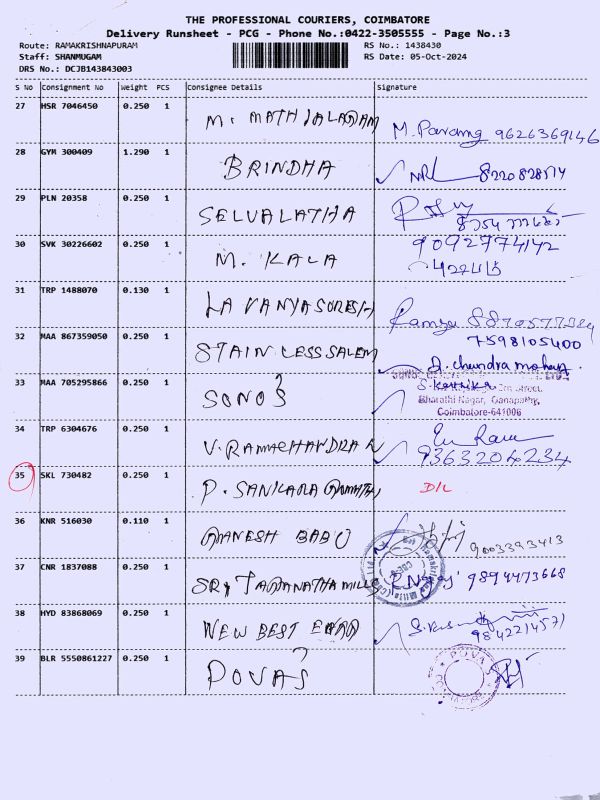 THE PROFESSIONAL COURIERS, COIMBATORE
Delivery Runsheet - PCG - Phone No.:0422-3505555 - Page No.:3
Route: RAMAKRISHNAPURAM RS No.: 1438430
Staff: SHANMUGAM RS Date: 05-Oct-2024
DRS No.: DCJB143843003
S No Consignment No Weight PCS Consignee Details Signature
27 HSR 7046450 0.250 1 M. MATHIALAGAM M. 9626369146
28 GYM 300409 1.290 1 BRINDHA
29 PLN 20358 0.250 1 SELVALATHA
30 SVK 30226602 0.250 1 M. KALA 9092774142
31 TRP 1488070 0.130 1 LAVANYA SURESH
32 MAA 867359050 0.250 1 STAINLESS SALEM 7598105400
D. chandra mohan.
33 MAA 705295866 0.250 1 SONO'S S. Karthika
Street,
Bharathi Nagar, Ganapathy,
Coimbatore-641006
34 TRP 6304676 0.250 1 V. RAMACHANDRAN
9363204234
35 SKL 730482 0.250 1 P. SANKARA D/L
36 KNR 516030 0.110 1 GANESH BABU 9003393413
37 CNR 1837088 0.250 1 SRI JAGANATHA MILLS 9894473668
38 HYD 83868069 0.250 1 NEW BEST
9842214571
39 BLR 5550861227 0.250 1 POVA'S POVA